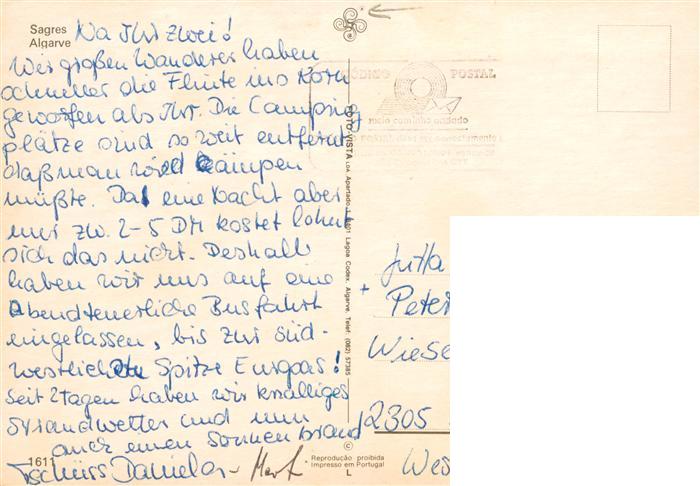 Sagres
Algarve
Na Ihr zwei!
Wir großen Wanderer haben
schneller die Flinte ins Korn
geworfen als Ihr. Die Camping
plätze sind so weit entfernt
daß man wild kämpen
müßte. Da eine Nacht aber
nur zw. 2-5 DM kostet lohnt
sich das nicht. Deshalb
haben wir uns auf eine
Abendteuerliche Busfahrt
eingelassen, bis zur süd-
westlichsten Spitze Europas!
Seit 2 Tagen haben wir knalliges
Strandwetter und nun
auch einen Sonnenbrand
Tschüss Daniela -
1611
FOTO-VISTA LDA. Apartado Lagoa Codex, Algarve, Telef. (082) 57365
©
Reprodução proibida
Impresso em Portugal
L
CÓDIGO POSTAL
meio caminho andado
Jutta
+ Peter
Wiese
2305
Wes